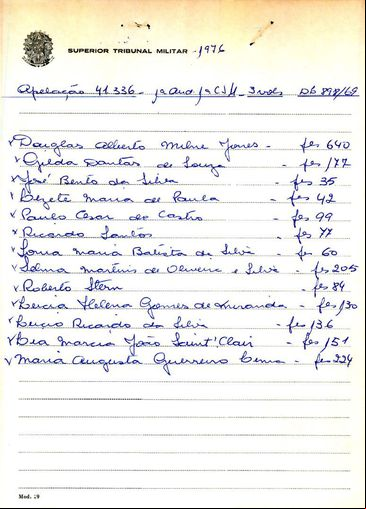 SUPERIOR TRIBUNAL MILITAR - 1976
Apelação 41.336 - 1ª Aud / 1ª CJM - 3 vols DL 898/69
✓ Douglas Alberto Milne Jones - fls 640
✓ Gilda Dantas de Souza - fls 177
✓ José Bento da Silva - fls 35
✓ Maria de Paula - fls 42
✓ Paulo Cesar de Castro - fls 99
✓ Ricardo Santos - fls 77
✓ Sonia Maria Batista da Silva - fls 60
✓ Selma Martins de Oliveira e Silva - fls 205
✓ Roberto Stern - fls 84
✓ Helena Gomes de Miranda - fls 130
✓ Ricardo da Silva - fls 136
✓ Marcia João Saint'Clair - fls 151
✓ Maria Augusta Guerreiro - fls 224
Mod. 19